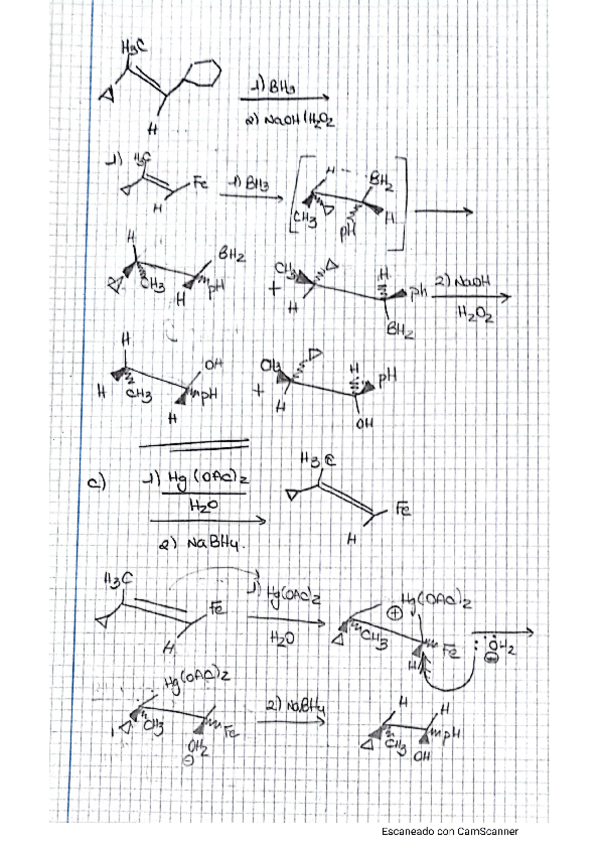 H3C
H
1) BH3
2) NaOH/H2O2
1) H3C
Fe
H
1) BH3
H
BH2
CH3
pH
H
H
BH2
CH3
H
pH
+
CH3
H
H
ph
BH2
2) NaOH
H2O2
H
OH
H
CH3
H
pH
+
CH3
H
H
pH
OH
c)
1) Hg(OAc)2
H2O
2) NaBH4.
H3C
Fe
H
H3C
Fe
H
1) Hg(OAc)2
H2O
+
Hg(OAc)2
CH3
Fe
H
:ÖH2
Hg(OAc)2
CH3
Fe
OH2
2) NaBH4
H
H
CH3
pH
OH
Escaneado con CamScanner